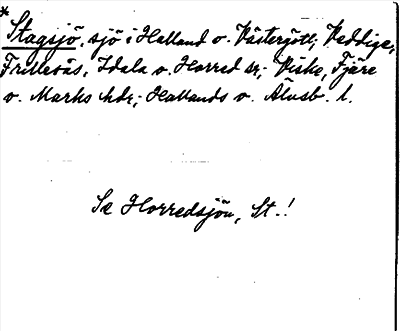 *
Stagsjö, sjö i Halland o. Västergötl., Veddige,
Frillesås, Idala o. Horred sr, Viske, Fjäre
o. Marks hdr, Hallands o. Älvsb. l.
Se Horredsjön, St.!